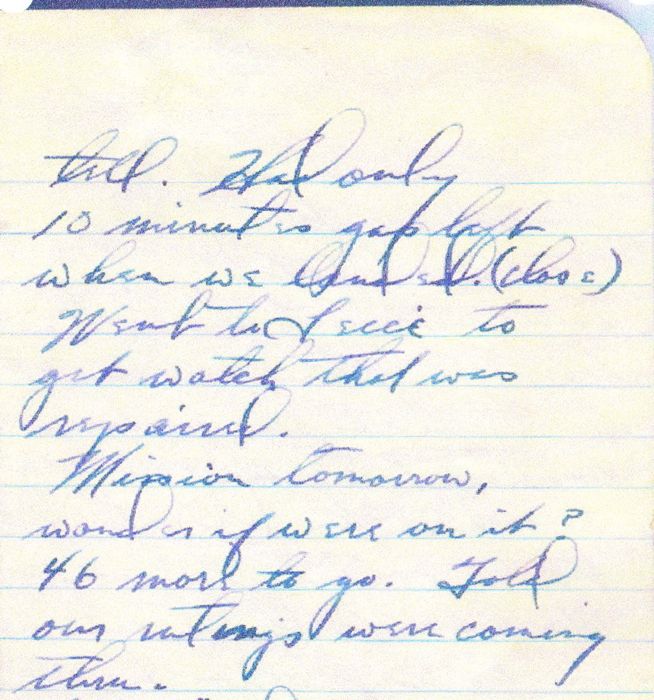 tell. Had only
10 minutes gas left
when we landed. (close)
Went to Lecce to
get watch that was
repaired.
Mission tomorrow,
wonder if were on it?
46 more to go. Told
our ratings were coming
thru.